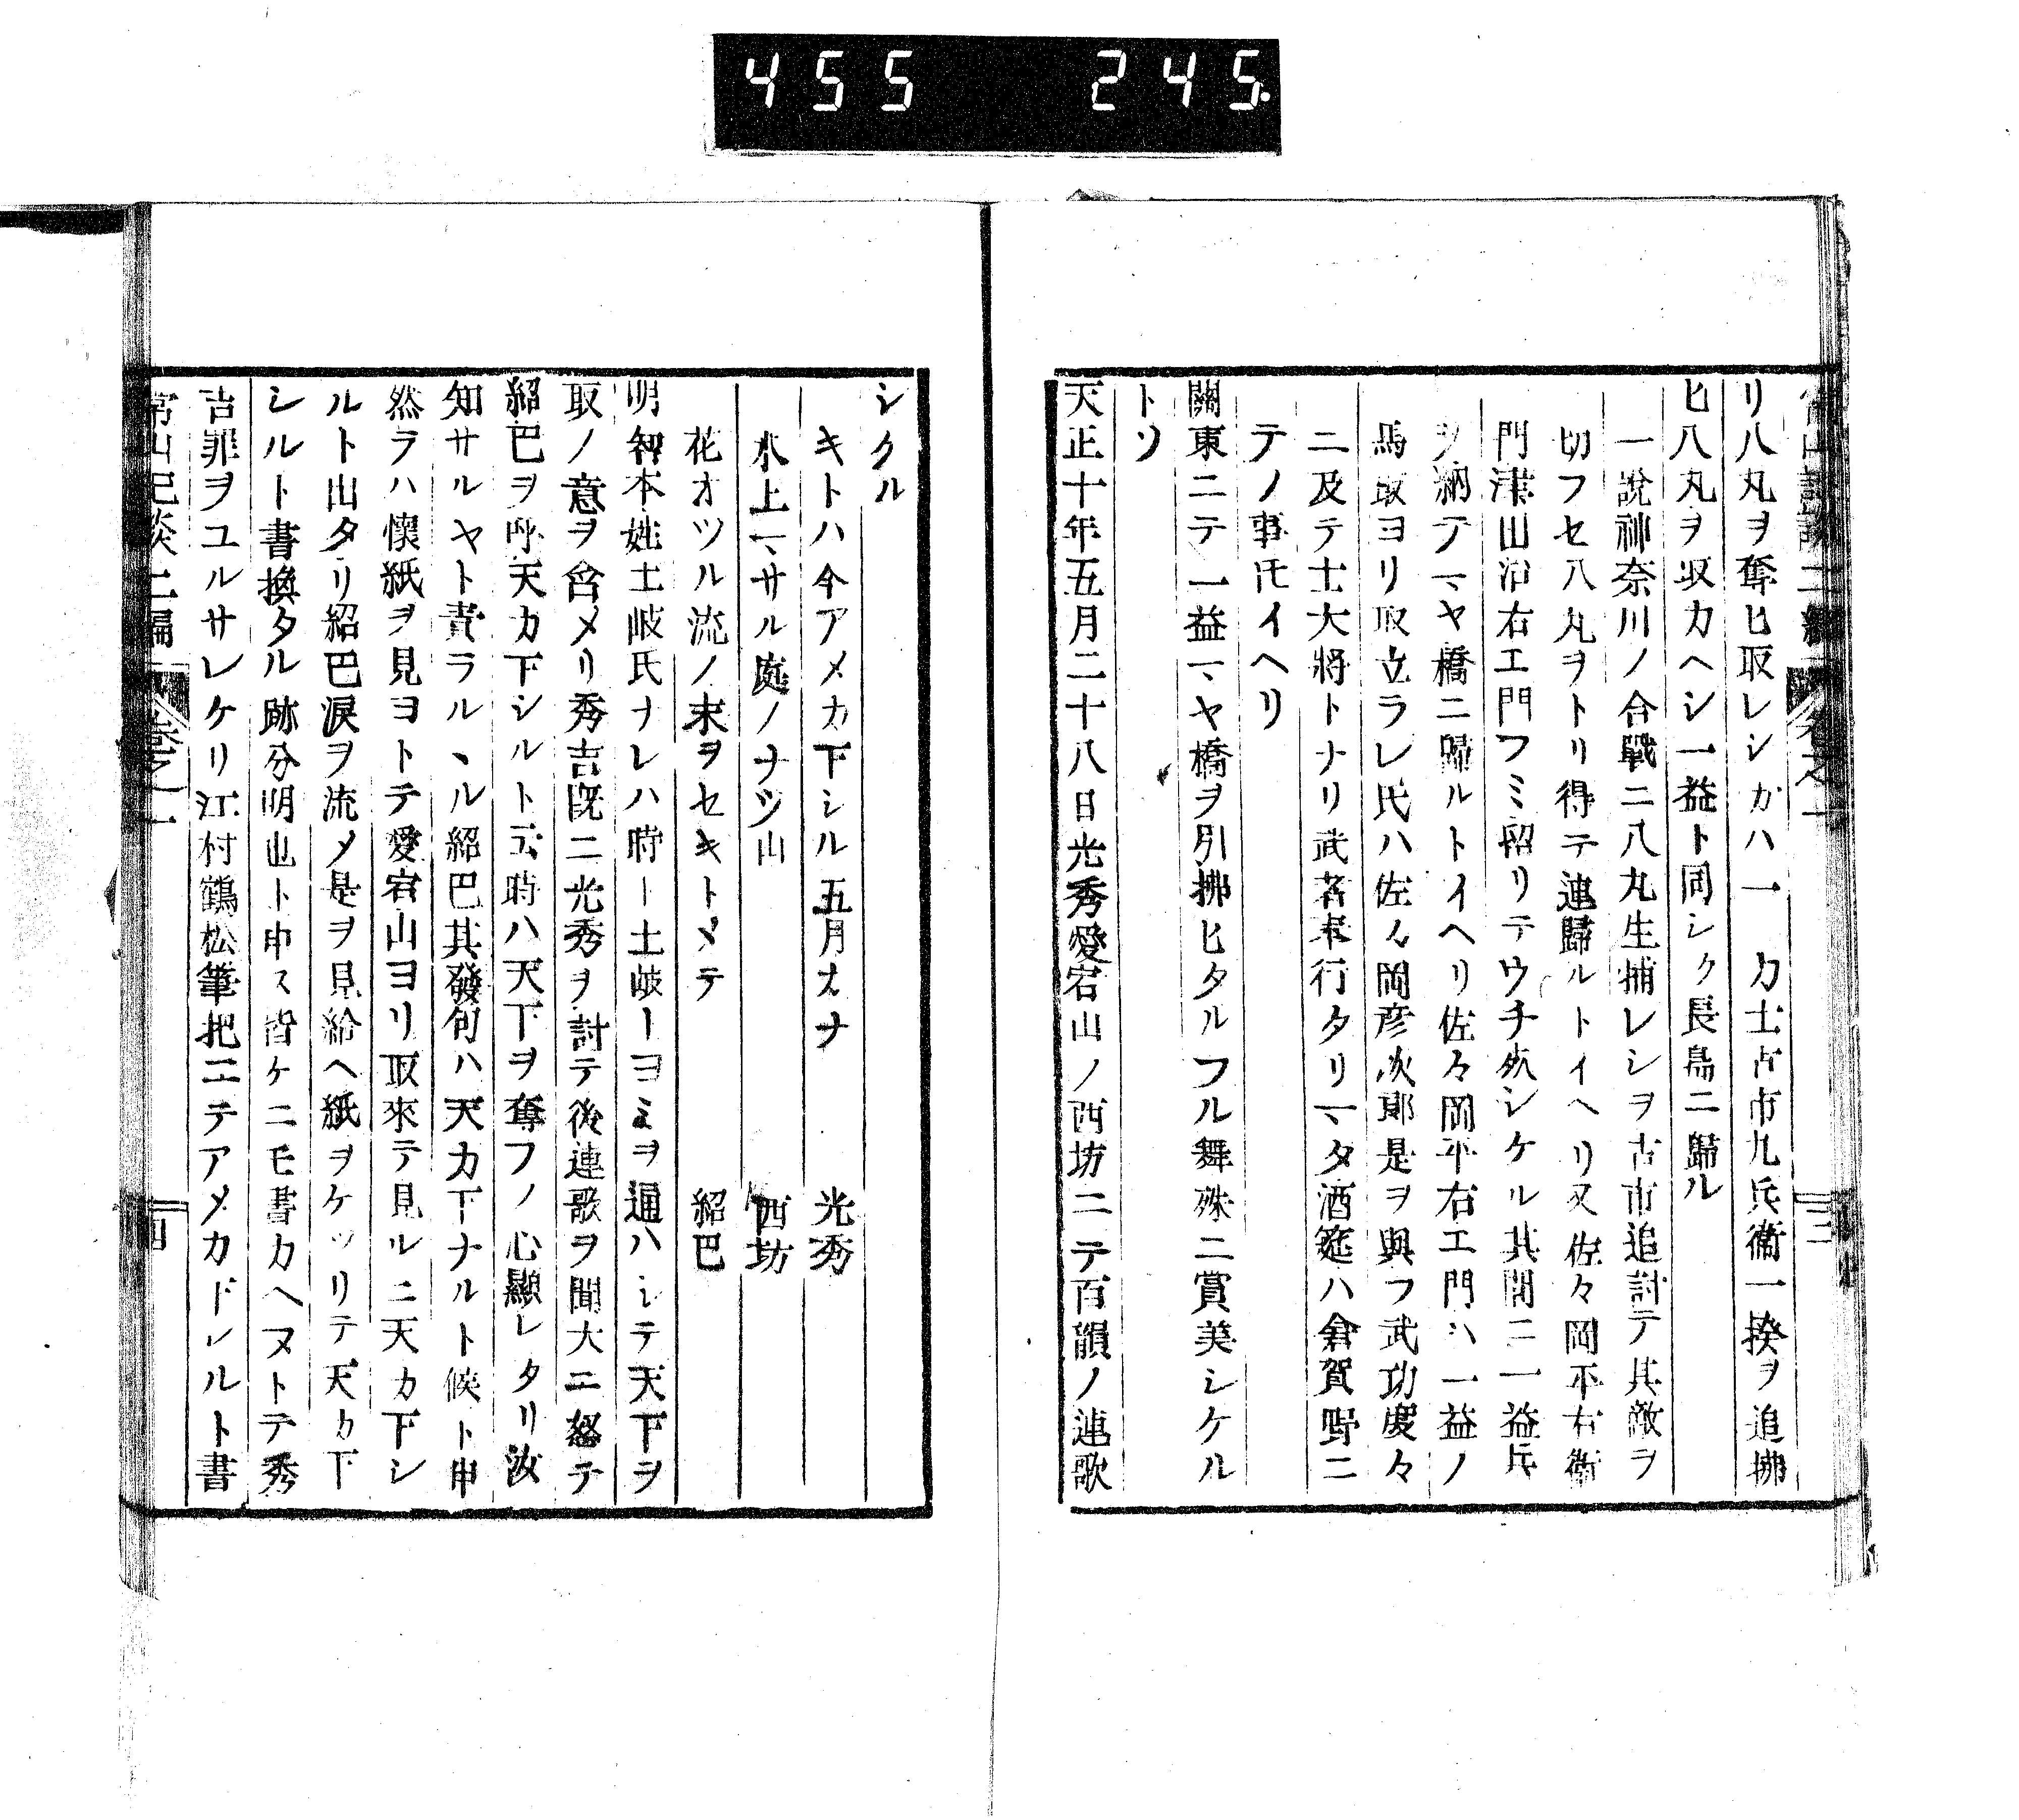 455 245.
リ八丸ヲ奪ヒ取レシカハ一 力士古市九兵衛一揆ヲ追拂
ヒ八丸ヲ取カヘシ一益ト同シク長島ニ歸ル
一說神奈川ノ合戰ニ八丸生捕レシヲ古市追討テ其敵ヲ
切フセ八丸ヲトリ得テ連歸ルトイヘリ又佐々岡平右衛
門津山治右エ門フミ留リテウチ死シケル其間ニ一益兵
ヲ納テマヤ橋ニ歸ルトイヘリ佐々岡平右エ門ハ一益ノ
馬取ヨリ取立ラレ氏ハ佐々岡彦次郎是ヲ與フ武功度々
ニ及テ士大將トナリ武者奉行タリマタ酒筵ハ倉賀野ニ
テノ事𪜈イヘリ
關東ニテ一益マヤ橋ヲ引拂ヒタルフル舞殊ニ賞美シケル
トソ
天正十年五月二十八日光秀愛宕山ノ西坊ニテ百韻ノ連歌
シクル
キトハ今アメカ下シル五月カナ 光秀
水上マサル庭ノナツ山 西坊
花オツル流ノ末ヲセキトメテ 紹巴
明智本姓土岐氏ナレハ時ー土岐ーヨミヲ通ハシテ天下ヲ
取ノ意ヲ含メリ秀吉既ニ光秀ヲ討テ後連歌ヲ聞大ニ怒テ
紹巴ヲ呼天カ下シルト云時ハ天下ヲ奪フノ心顯レタリ汝
知サルヤト責ラルヽル紹巴其發句ハ天カ下ナルト候ト申
然ラハ懷紙ヲ見ヨトテ愛宕山ヨリ取來テ見ルニ天カ下シ
ルト出タリ紹巴淚ヲ流メ是ヲ見給ヘ紙ヲケツリテ天カ下
シルト書換タル跡分明也ト申ス皆ケニモ書カヘヌトテ秀
吉罪ヲユルサレケリ江村鶴松筆把ニテアメカドシルト書
常山紀談二編 卷之一 四